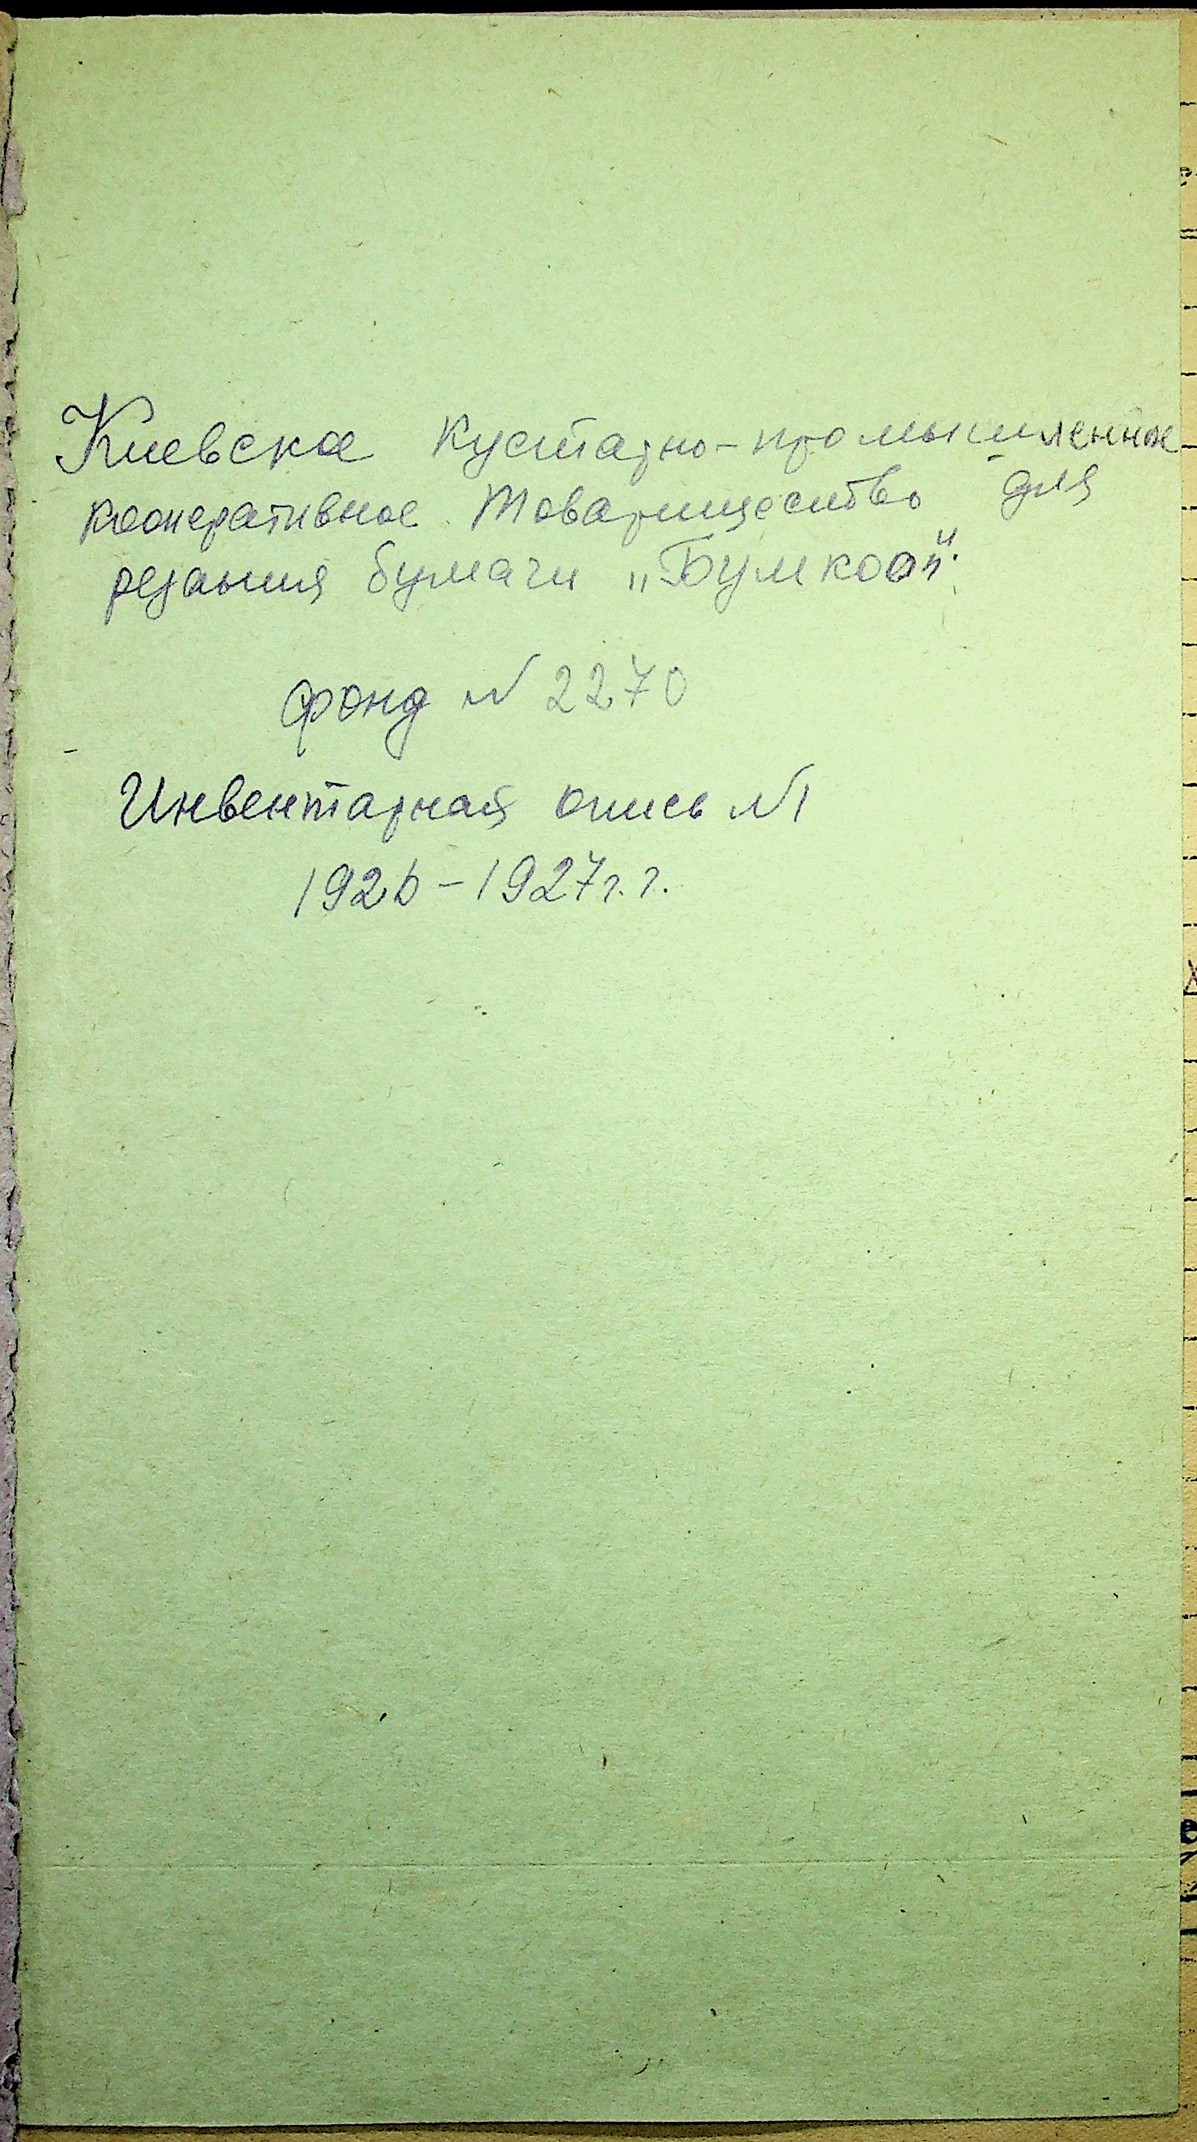 Киевское кустарно-промышленное
кооперативное товарищество для
резания бумаги „Бумкооп".
фонд № 2270
Инвентарная опись №1
1926-1927г.г.